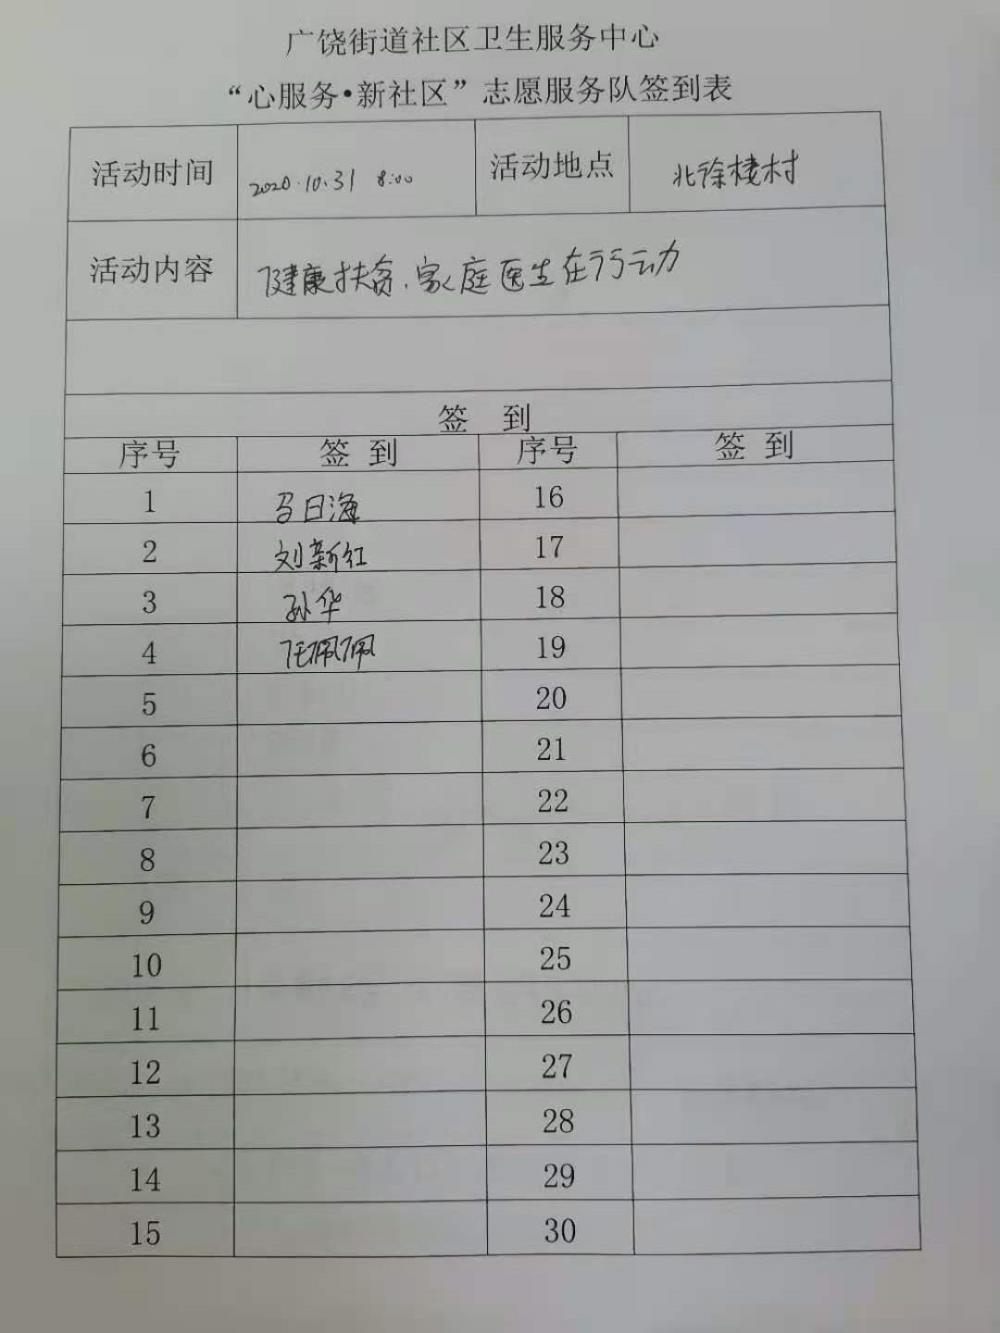 广饶街道社区卫生服务中心
“心服务•新社区”志愿服务队签到表
活动时间 2020.10.31 8:00 活动地点 北徐楼村
活动内容 健康扶贫.家庭医生在行动
签 到
序号 签 到 序号 签 到
1 马日海 16
2 刘新红 17
3 孙华 18
4 任佩佩 19
5 20
6 21
7 22
8 23
9 24
10 25
11 26
12 27
13 28
14 29
15 30